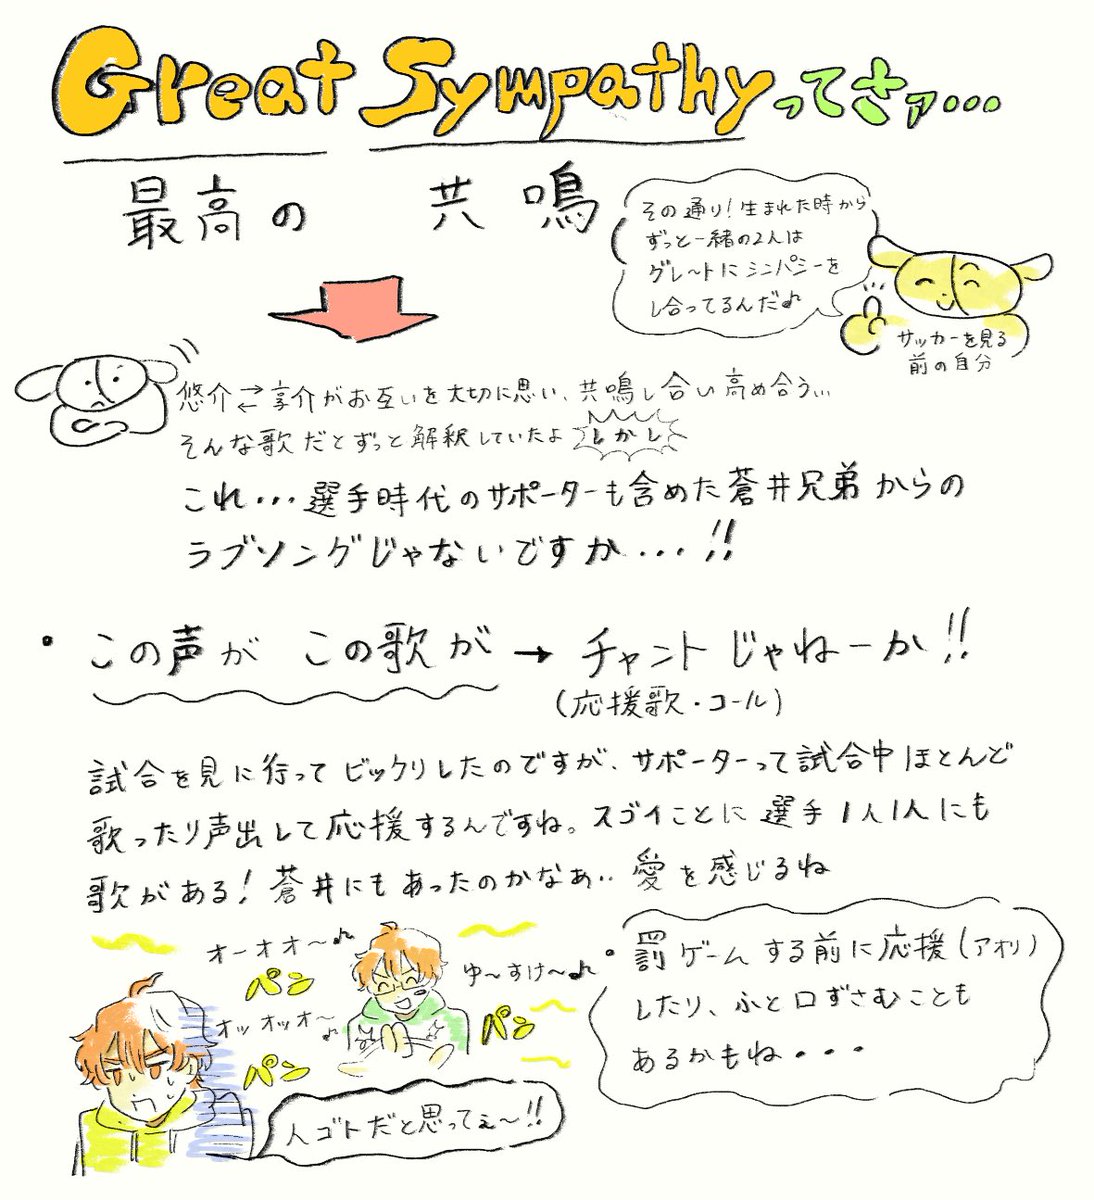 Great Sympathyってさァ…
最高の 共鳴
その通り!生まれた時から
ずっと一緒の2人は
グレートにシンパシーを
し合ってるんだ♪
サッカーを見る
前の自分
悠介⇄享介がお互いを大切に思い、共鳴し合い高め合う…
そんな歌だとずっと解釈していたよ しかし
これ…選手時代のサポーターも含めた蒼井兄弟からの
ラブソングじゃないですか…!!
・この声が この歌が→チャントじゃねーか!!
(応援歌・コール)
試合を見に行ってビックリしたのですが、サポーターって試合中ほとんど
歌ったり声出して応援するんですね。スゴイことに選手1人1人にも
歌がある!蒼井にもあったのかなぁ..愛を感じるね
オーオオ〜♪
パン
ゆ〜すけ〜♪
オッオッオ〜♪
パン
パン
人ゴトだと思ってぇ〜!!
・罰ゲームする前に応援(アオリ)
したり、ふと口ずさむことも
あるかもね・・・